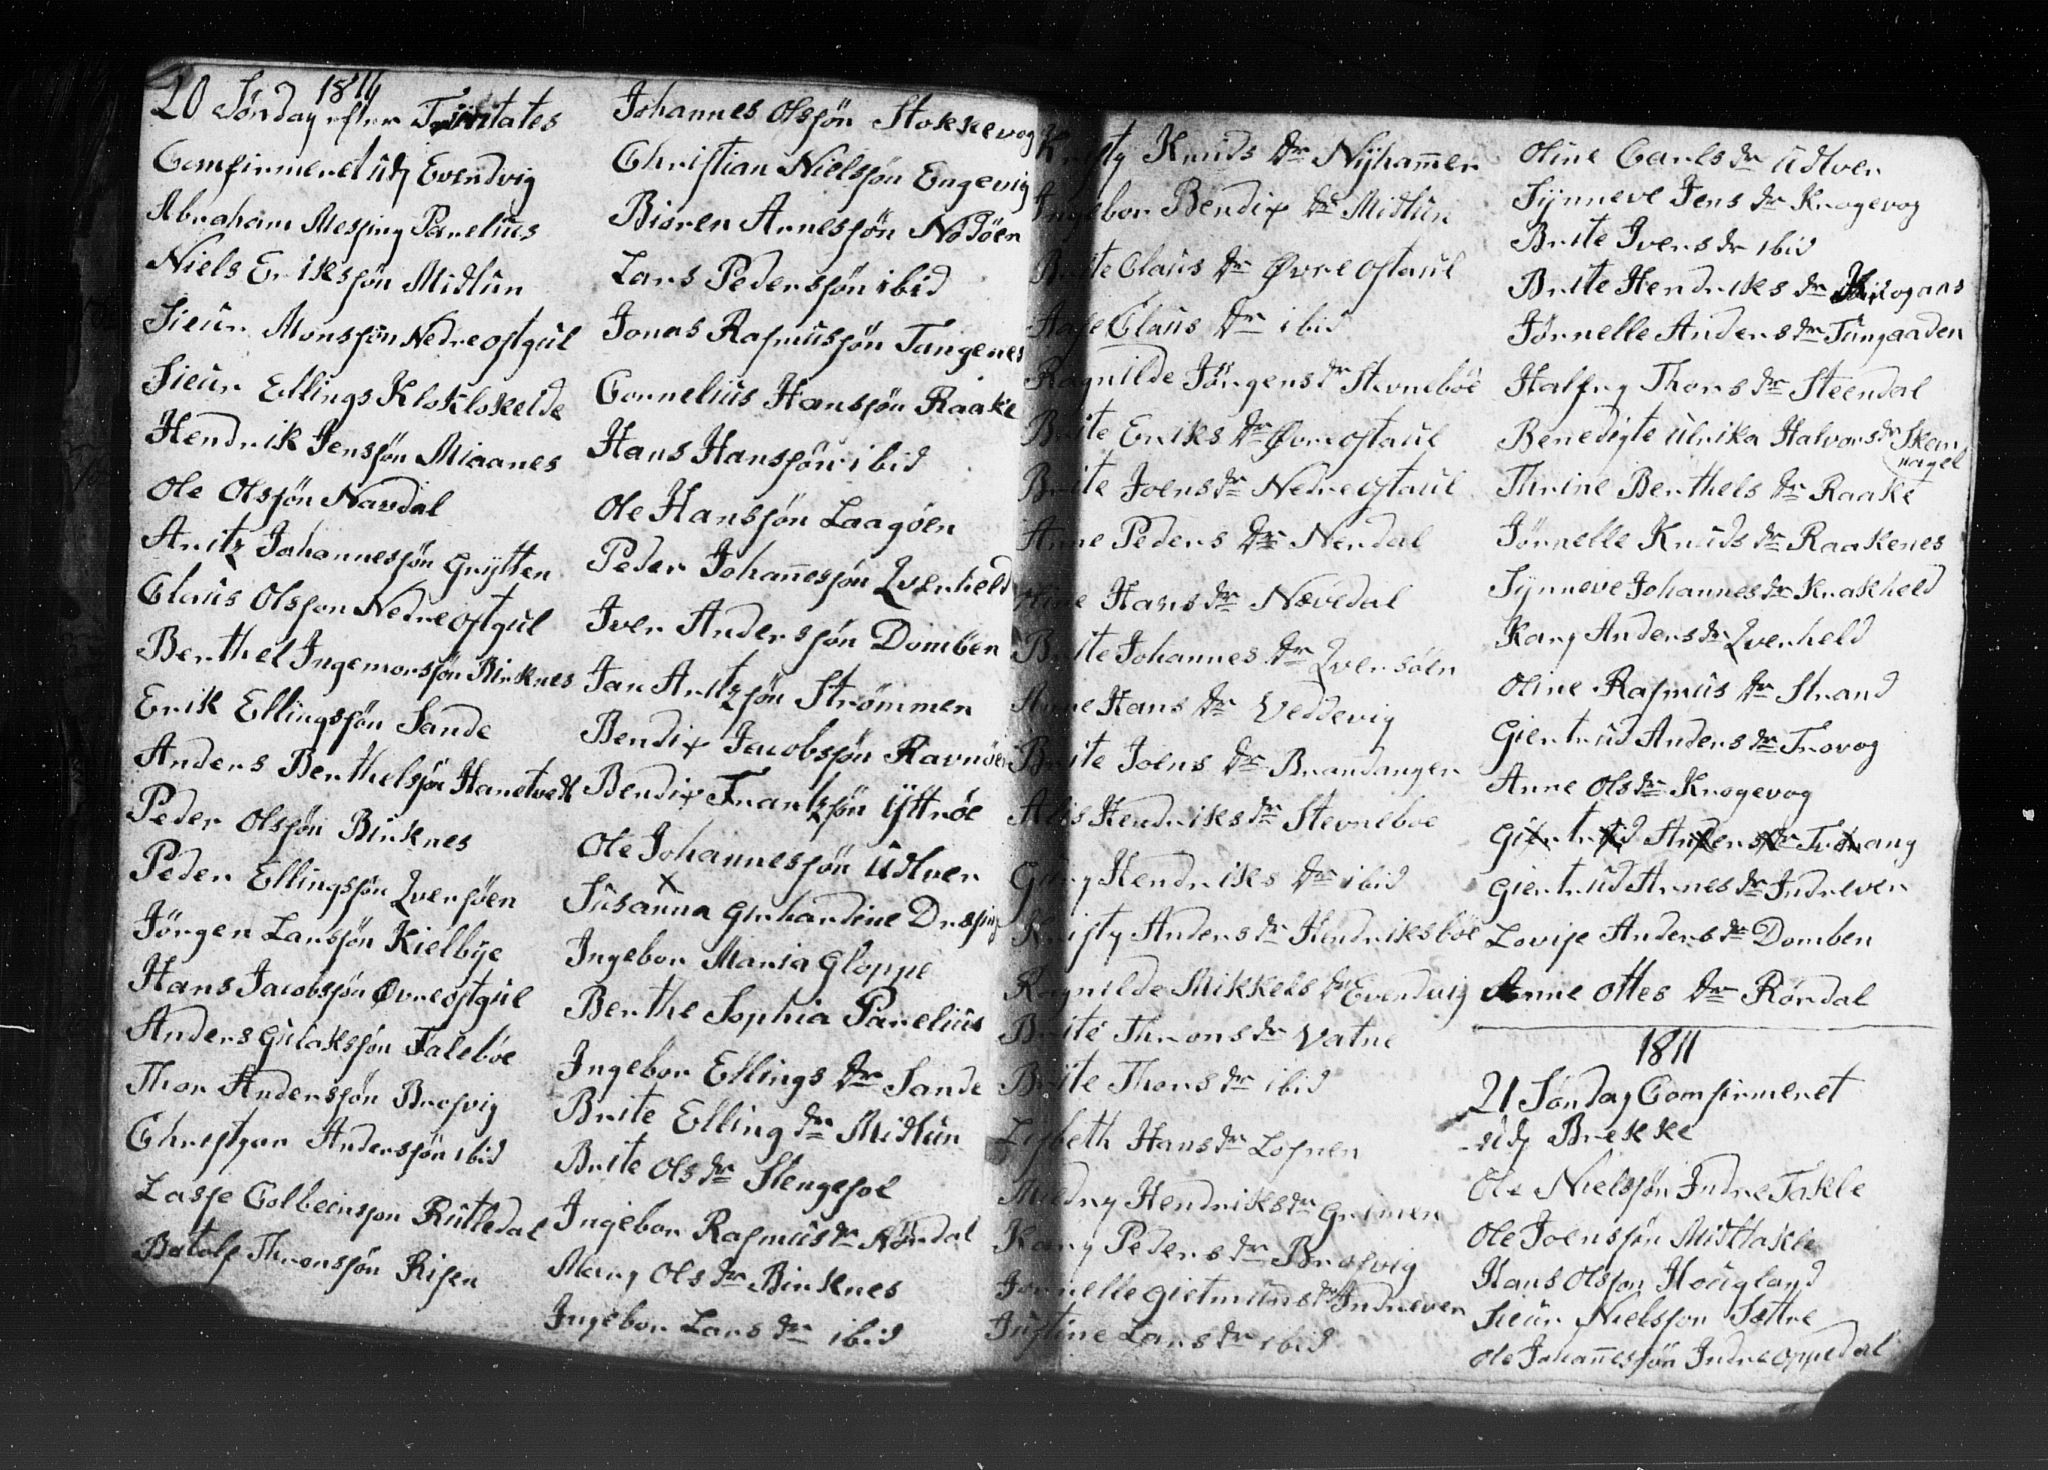 1811
20 Søndag efter Trinitates
Comfirmeret udj Evendvig
Abraham Messing Parelius
Niels Eriksøn Midtun
Sieur Monssøn Nedreostgul
Sieur Ellings Kloklokeide
Hendrik Jenssøn Miaanes
Ole Olssøn Navdal
Aritz Johannessøn Grytten
Claus Olsson Nedreostgul
Berthel Ingemorssøn Birknes
Erik Ellingssøn Sande
Anders Berthelssøn Hanetvedt
Peder Olssøn Birknes
Peder Ellingssøn Qversøen
Jörgen Larssøn Kielbye
Hans Jacobssøn Øvreostgul
Anders Gulakssøn Faleböe
Thor Anderssøn Brosvig
Christian Anderssøn ibid
Lasse Colbeenson Rutledal
Botolf Thronssøn Risen
Johannes Olssön Stokkevog
Christian Nielssøn Engevig
Bioren Arnessøn Nodöen
Lars Pederssøn ibid
Jonas Rasmussøn Tangenes
Cornelius Hanssøn Raake
Hans Hanssøn ibid
Ole Hanssøn Laagöen
Peder Johan̄essøn Qverheld
Iver Anderssøn Domben
Jan Aritzsøn Strømmen
Bendix Jacobssøn Ravnöen
Bendix Frantzsøn Yttröe
Ole Johannessøn Udtver
x
Susanna Gerhardine Dresing
Ingebor Maria Gloppe
Berthe Sophia Parelius
Ingebor Ellings dr Sande
Brite Elling dr Midtun
Brite Ols dr Stengesol
Ingebor Rasmus dr Nördal
Mary Ols dr Birknes
Ingebor Lars dr ibid
Kristy Knuds dr Nyham̄er
Ingebor Bendix dr Midtun
Brite Claus dr Øvreostgul
Aase Claus dr ibid
Ragnilde Jørgens dr Stevneböe
Brite Eriks dr Øvreostgul
Brite Joens dr Nedreostgul
Anne Peders dr Nerdal
Oline Hans dr Nævedal
Brite Johannes dr Qversöen
Anne Hans dr Veddevig
Brite Joens dr Brandanger
Alis Hendriks dr Stevneboe
Gury Hendriks dr ibid
Kristy Anders dr Hendriksböe
Ragnilde Mikkels dr Evendvig
Brite Throns dr Vatne
Brite Thors dr ibid
Lisbeth Hans dr Losnen
Mildry Hendriks dr Grimen
Kary Peders dr Brosvig
Jornelle Gietmunds dr Indrever
Justine Lars dr ibid
Oline Carls dr Udtver
Synneve Jens dr Krogevog
Brite Ivers dr ibid
Brite Hendriks dr
Jørnelle Anders dr Tungaaden
Halfry Thors dr Steendal
Benedigte Ulrika Halvors dr Skern
nagel
Thrine Berthels dr Raake
Jørnelle Knuds dr Raakenes
Synneve Johannes dr Krakheld
Kary Anders dr Qverheld
Oline Rasmus dr Strand
Giertrud Anders dr Trovog
Anne Ols dr Krogevog
Giertrud Anders dr
Giertrud Arnes dr Indrever
Lovise Anders dr Domben
Anne Ottes dr Rördal
1811
21 Søndag Comfirmeret
udj Brekke
Ole Nielssøn Indre Takle
Ole Joenssøn Midttakle
Hans Olsson Hougland
Sieur Nielsson Sættre
Ole Johan̄essøn Indreoppedal